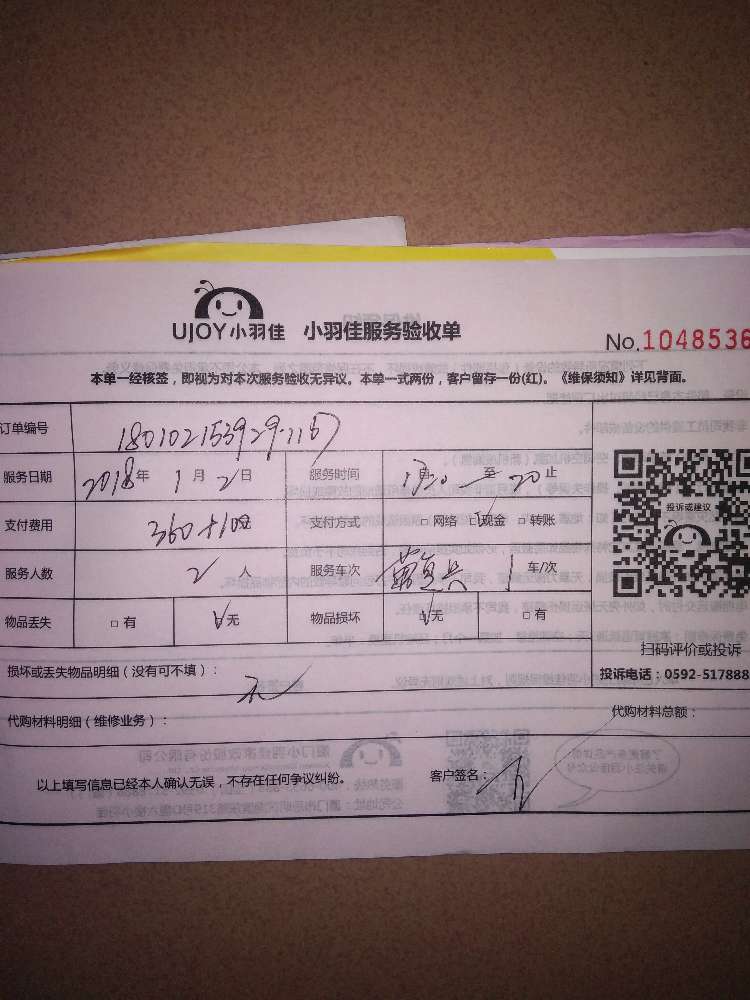 UJOY小羽佳 小羽佳服务验收单
No.1048536
本单一经核签，即视为对本次服务验收无异议。本单一式两份，客户留存一份(红)。《维保须知》详见背面。
订单编号 18010215392911
服务日期 2018年 1月 2日 服务时间 至 20止
支付费用 360+100 支付方式 □网络 □现金 □转账
服务人数 2 人 服务车次 1 车/次
物品丢失 □有 □无 物品损坏 □无 □有
投诉或建议
扫码评价或投诉
投诉电话：0592-517888
损坏或丢失物品明细（没有可不填）： 无
代购材料明细（维修业务）： 代购材料总额：
以上填写信息已经本人确认无误，不存在任何争议纠纷。 客户签名：